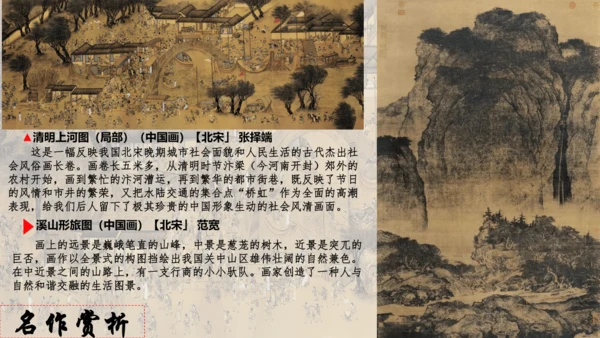 ▲清明上河图（局部）（中国画）【北宋」 张择端
这是一幅反映我国北宋晚期城市社会面貌和人民生活的古代杰出社
会风俗画长卷。画卷长五米多，从清明时节汴梁（今河南开封）郊外的
农村开始，画到繁忙的汴河漕运，再到繁华的都市街巷，既反映了节日
的风情和市井的繁荣，又把水陆交通的集合点“桥虹”作为全画的高潮
表现，给我们后人留下了极其珍贵的中国形象生动的社会风清画面。
溪山形旅图（中国画）【北宋」 范宽
画上的远景是巍峨笔直的山峰，中景是葱茏的树木，近景是突兀的
巨石，画作以全景式的构图描绘出我国关中山区雄伟壮阔的自然兼色。
在中近景之间的山路上，有一支行商的小小驮队。画家创造了一种人与
自然和谐交融的生活图景。
名作赏析